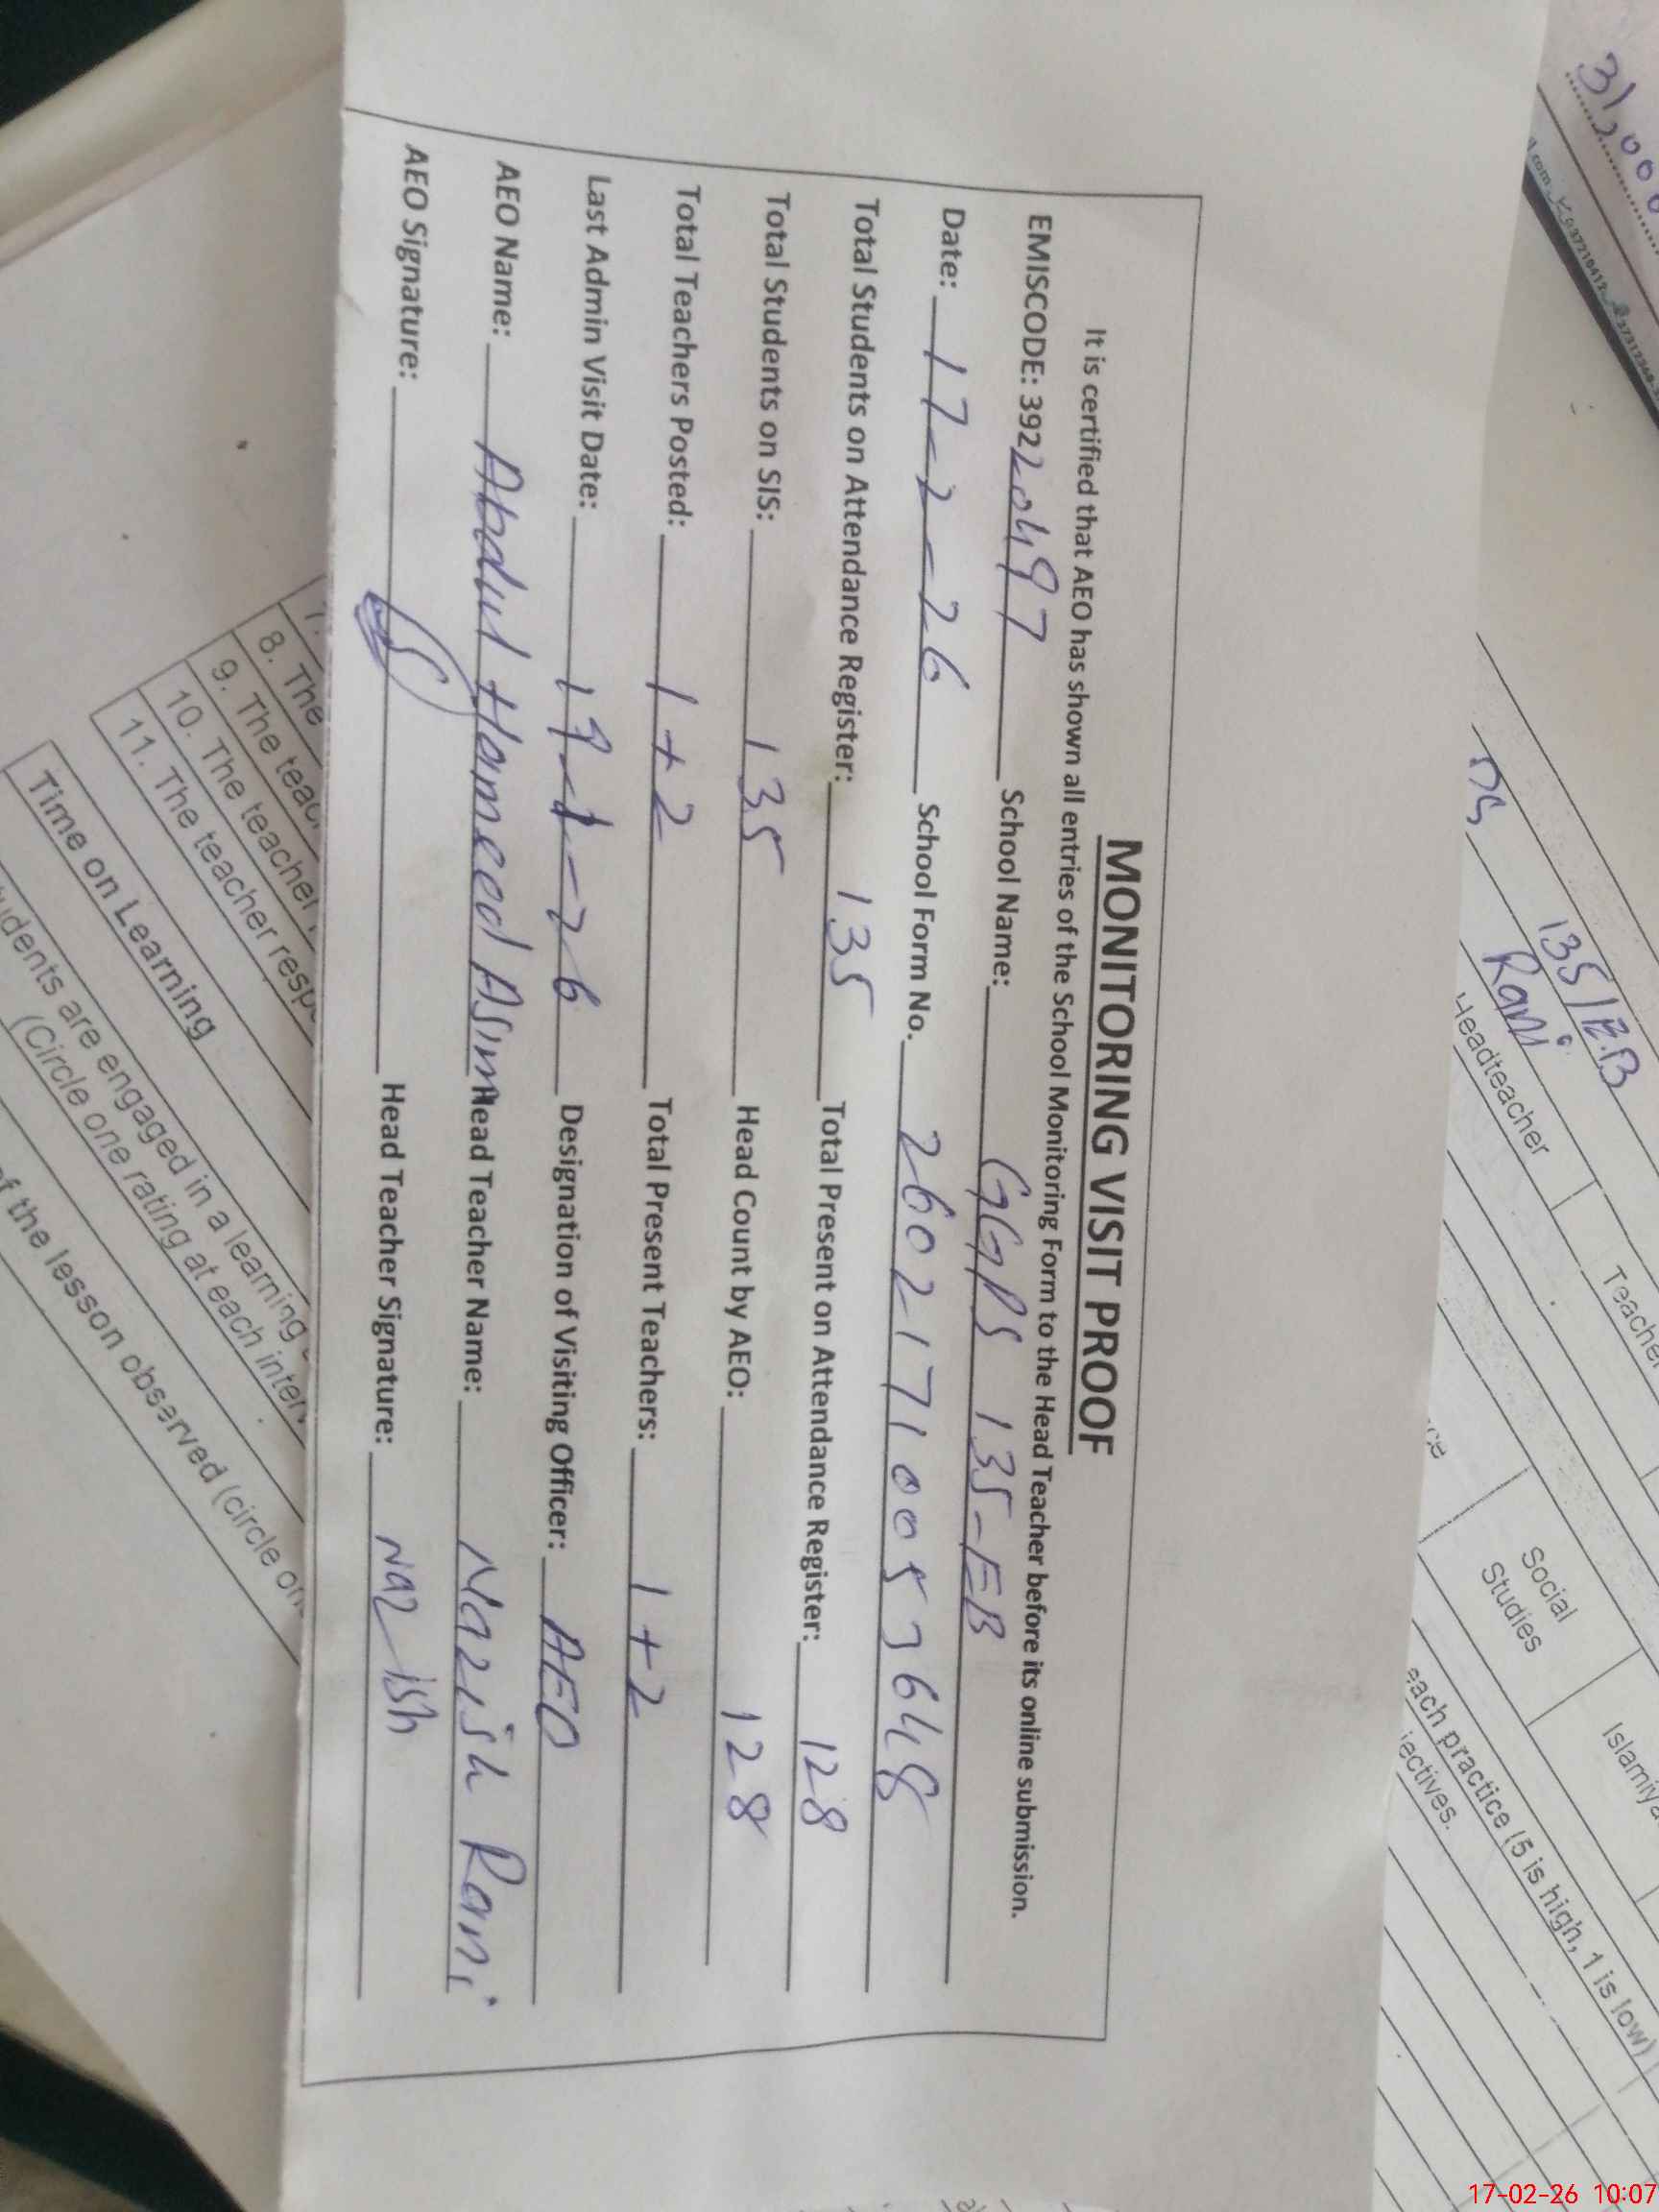 MONITORING VISIT PROOF
It is certified that AEO has shown all entries of the School Monitoring Form to the Head Teacher before its online submission.
EMISCODE: 39220497 School Name: GGPS 135-EB
Date: 17-2-26 School Form No. 2602171005 7648
Total Students on Attendance Register: 135 Total Present on Attendance Register: 128
Total Students on SIS: 135 Head Count by AEO: 128
Total Teachers Posted: 1+2 Total Present Teachers: 1+2
Last Admin Visit Date: 19-1-26 Designation of Visiting Officer: AEO
AEO Name: Abdul Hameed Asim Head Teacher Name: Nazish Rani
AEO Signature: Head Teacher Signature: Nazish
31,000
135/E.B
Rani
Headteacher
Teacher
Social
Studies
Islamiya
each practice (5 is high, 1 is low)
jectives.
7.
8. The
9. The teac
10. The teacher
11. The teacher resp
Time on Learning
udents are engaged in a learning
(Circle one rating at each inter
of the lesson observed (circle on
17-02-26 10:07